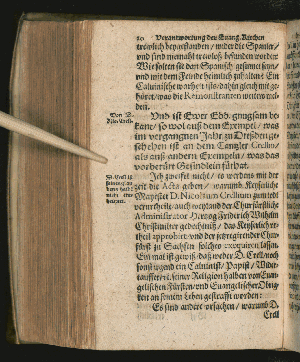 20 Verantwortung der Evang. Kirchen
trewlich beygestanden / wider die Spanier /
und sind niemahl trewlos befunden worden.
Wir solten sie dan Spanisch gesinnet seyn /
und mit dem Feinde heimlich zuhalten: Ein
Calvinische warheit ist: dahin gleich mit ge-
höret / was die Remonstranten
den.
Von D.
Nic. Crell.
Uns ist Ewer Ehb. gnugsam be-
kant / so wol auß dem Exempel / was
im vergangnen Jahr zu Dreßden ge-
schehen ist an dem Cantzler Crellen /
als auß andern Exempeln / was das
vorberürt Gesindlein.
D. Crell ist
nicht
Ich zweifel nicht / es werden mit der
zeit die Acta geben / warumb Keyserliche
Mayestet D. Nicolaum Crellium zum tode
verurtheilt: auch weyland der Churfürstliche
Administrator Hertzog Friderich Wilhelm
Christmilter gedechtniß / das Keyserliche
theil approbirt: und der jetz regierender Chur-
fürst zu Sachsen solches exequiren lassen.
Ein mal ist gewiß / daß weder D. Crell / noch
sonst jrgend ein Calvinist / Papist / Wider-
teuffer / rc. seiner Religion halben von Evan-
gelischen Fürsten / und Evangelischer Obrig-
keit an seinem Leben gestrafft worden:
Es sind andere ursachen / warumb D.
Crell